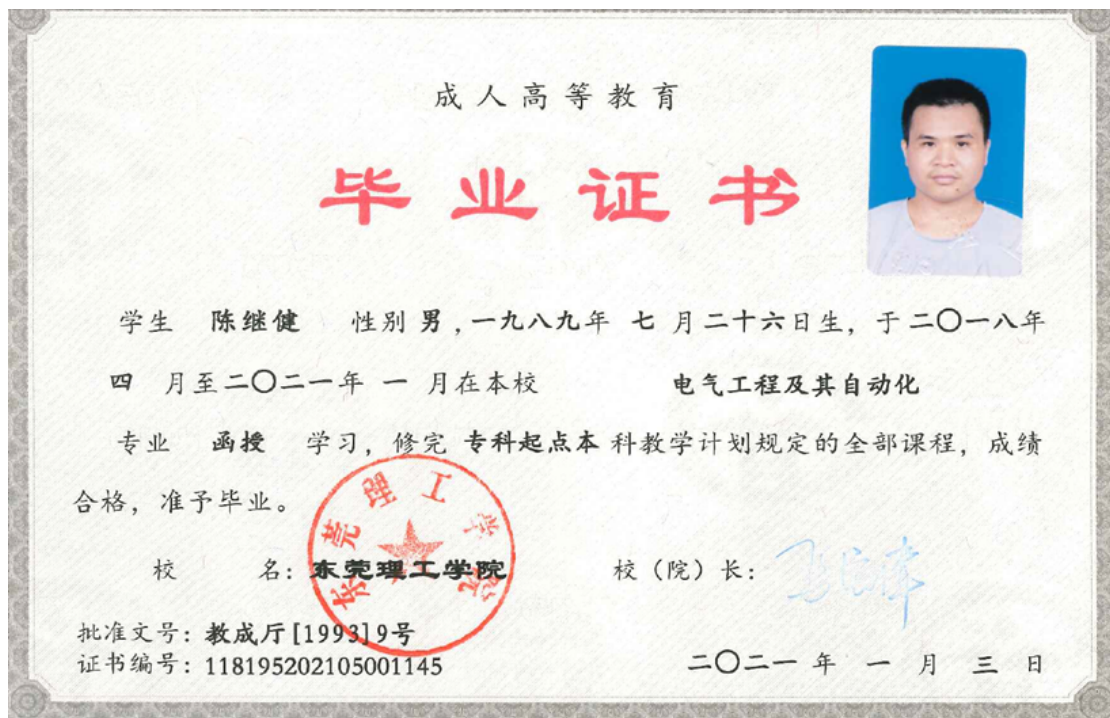 成人高等教育
毕业证书
学生 陈继健 性别 男,一九八九年 七 月二十六日生,于二〇一八年
四 月至二〇二一年 一 月在本校 电气工程及其自动化
专业 函授 学习,修完 专科起点本 科教学计划规定的全部课程,成绩
合格,准予毕业。
东莞理工学院
校 名:东莞理工学院 校(院)长:
批准文号:教成厅[1993]9号
证书编号:118195202105001145 二〇二一 年 一 月 三 日